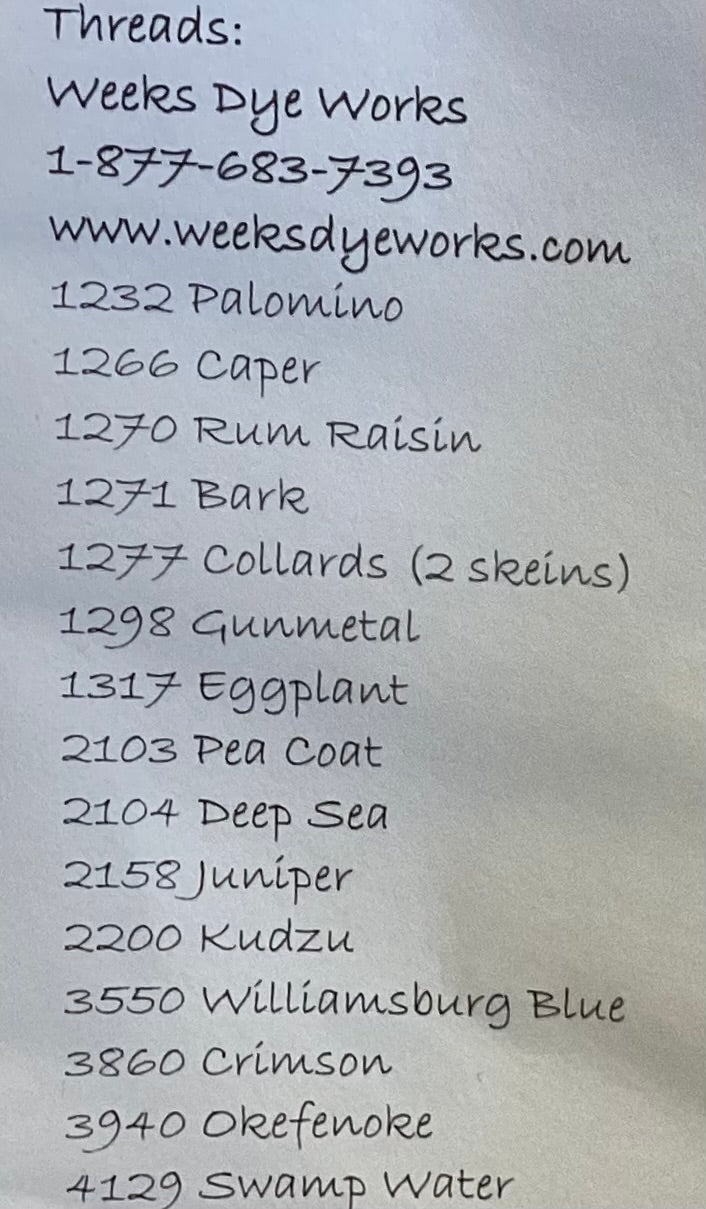 Threads:
Weeks Dye Works
1-877-683-7393
www.weeksdyeworks.com
1232 Palomino
1266 Caper
1270 Rum Raisin
1271 Bark
1277 Collards (2 skeins)
1298 Gunmetal
1317 Eggplant
2103 Pea Coat
2104 Deep Sea
2158 Juniper
2200 Kudzu
3550 Williamsburg Blue
3860 Crimson
3940 Okefenoke
4129 Swamp Water